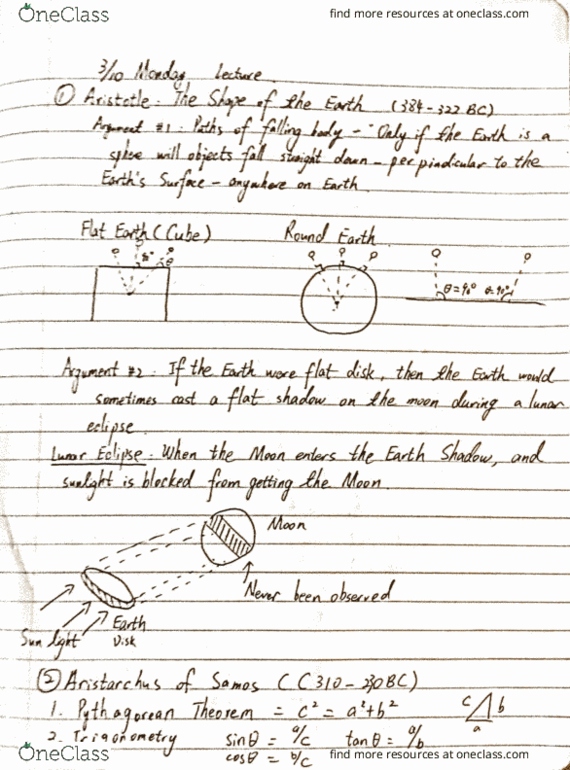 OneClass
find more resources at oneclass.com
3/10 Monday Lecture.
① Aristotle: The Shape of the Earth (384-322 BC)
Argument #1: Paths of falling body - "Only if the Earth is a
sphse will objects fall straight down - perpindicular to the
Earth's Surface - anywhere on Earth.
Flat Earth (Cube) Round Earth
90° θ
θ=90° θ=90°
Argument #2: If the Earth were flat disk, then the Earth would
sometimes cast a flat shadow on the moon during a lunar
eclipse.
Lunar Eclipse: When the Moon enters the Earth Shadow, and
sunlight is blocked from getting the Moon.
Moon
Never been observed
Earth
Disk
Sun light
② Aristarchus of Samos (C310-230BC)
1. Pythagorean Theorem = c² = a²+b²
c b
a
2. Trigonometry sinθ = a/c tanθ = a/b
cosθ = b/c
OneClass
find more resources at oneclass.com